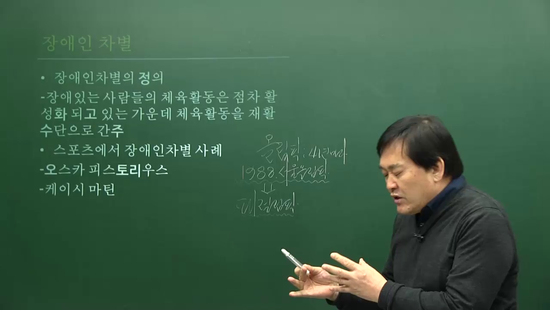 장애인 차별
• 장애인차별의 정의
-장애있는 사람들의 체육활동은 점차 활
성화 되고 있는 가운데 체육활동을 재활
수단으로 간주
• 스포츠에서 장애인차별 사례
-오스카 피스토리우스
-케이시 마틴
올림픽
1988